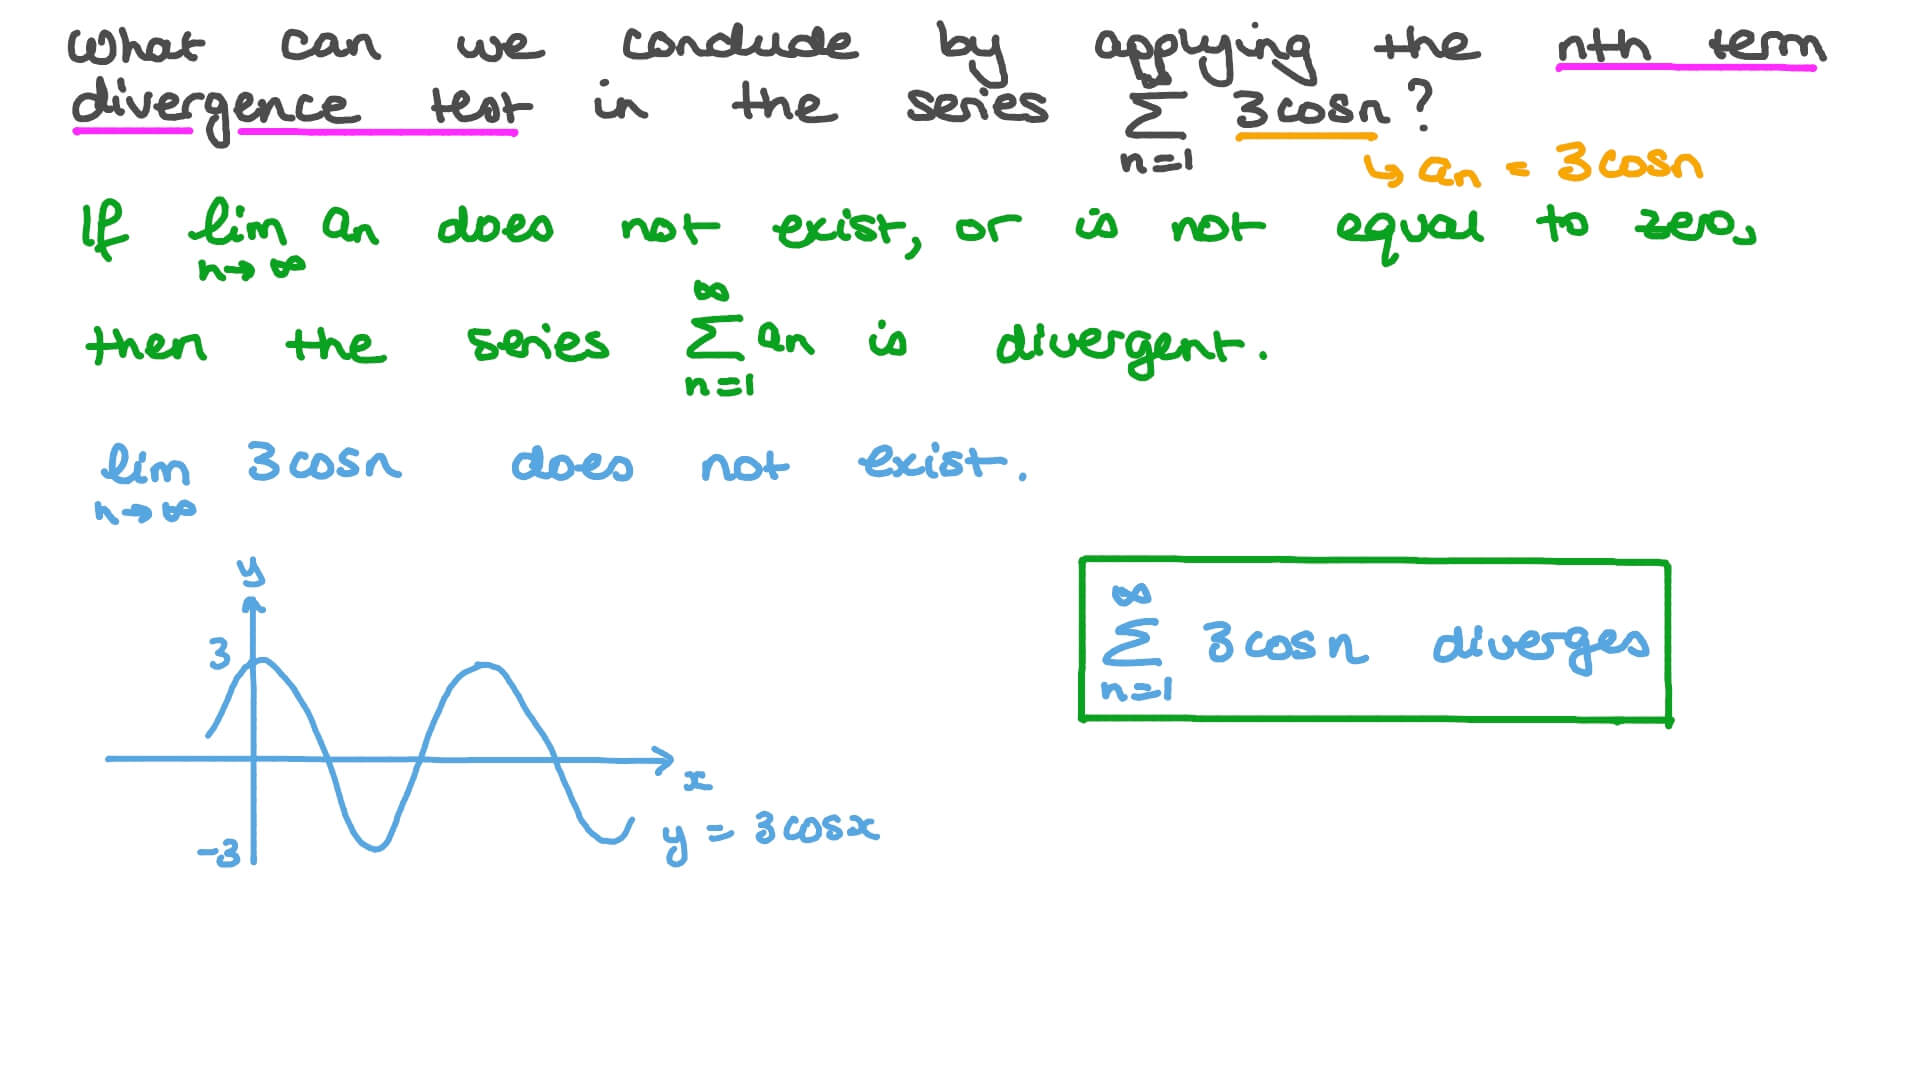 What can we conclude by applying the nth term
divergence test in the series ∞ Σ n=1 3cosn?
↳ an = 3cosn
If lim n→∞ an does not exist, or is not equal to zero,
then the series ∞ Σ n=1 an is divergent.
lim n→∞ 3cosn does not exist.
y
3
-3
x
y = 3cosx
∞ Σ n=1 3cosn diverges